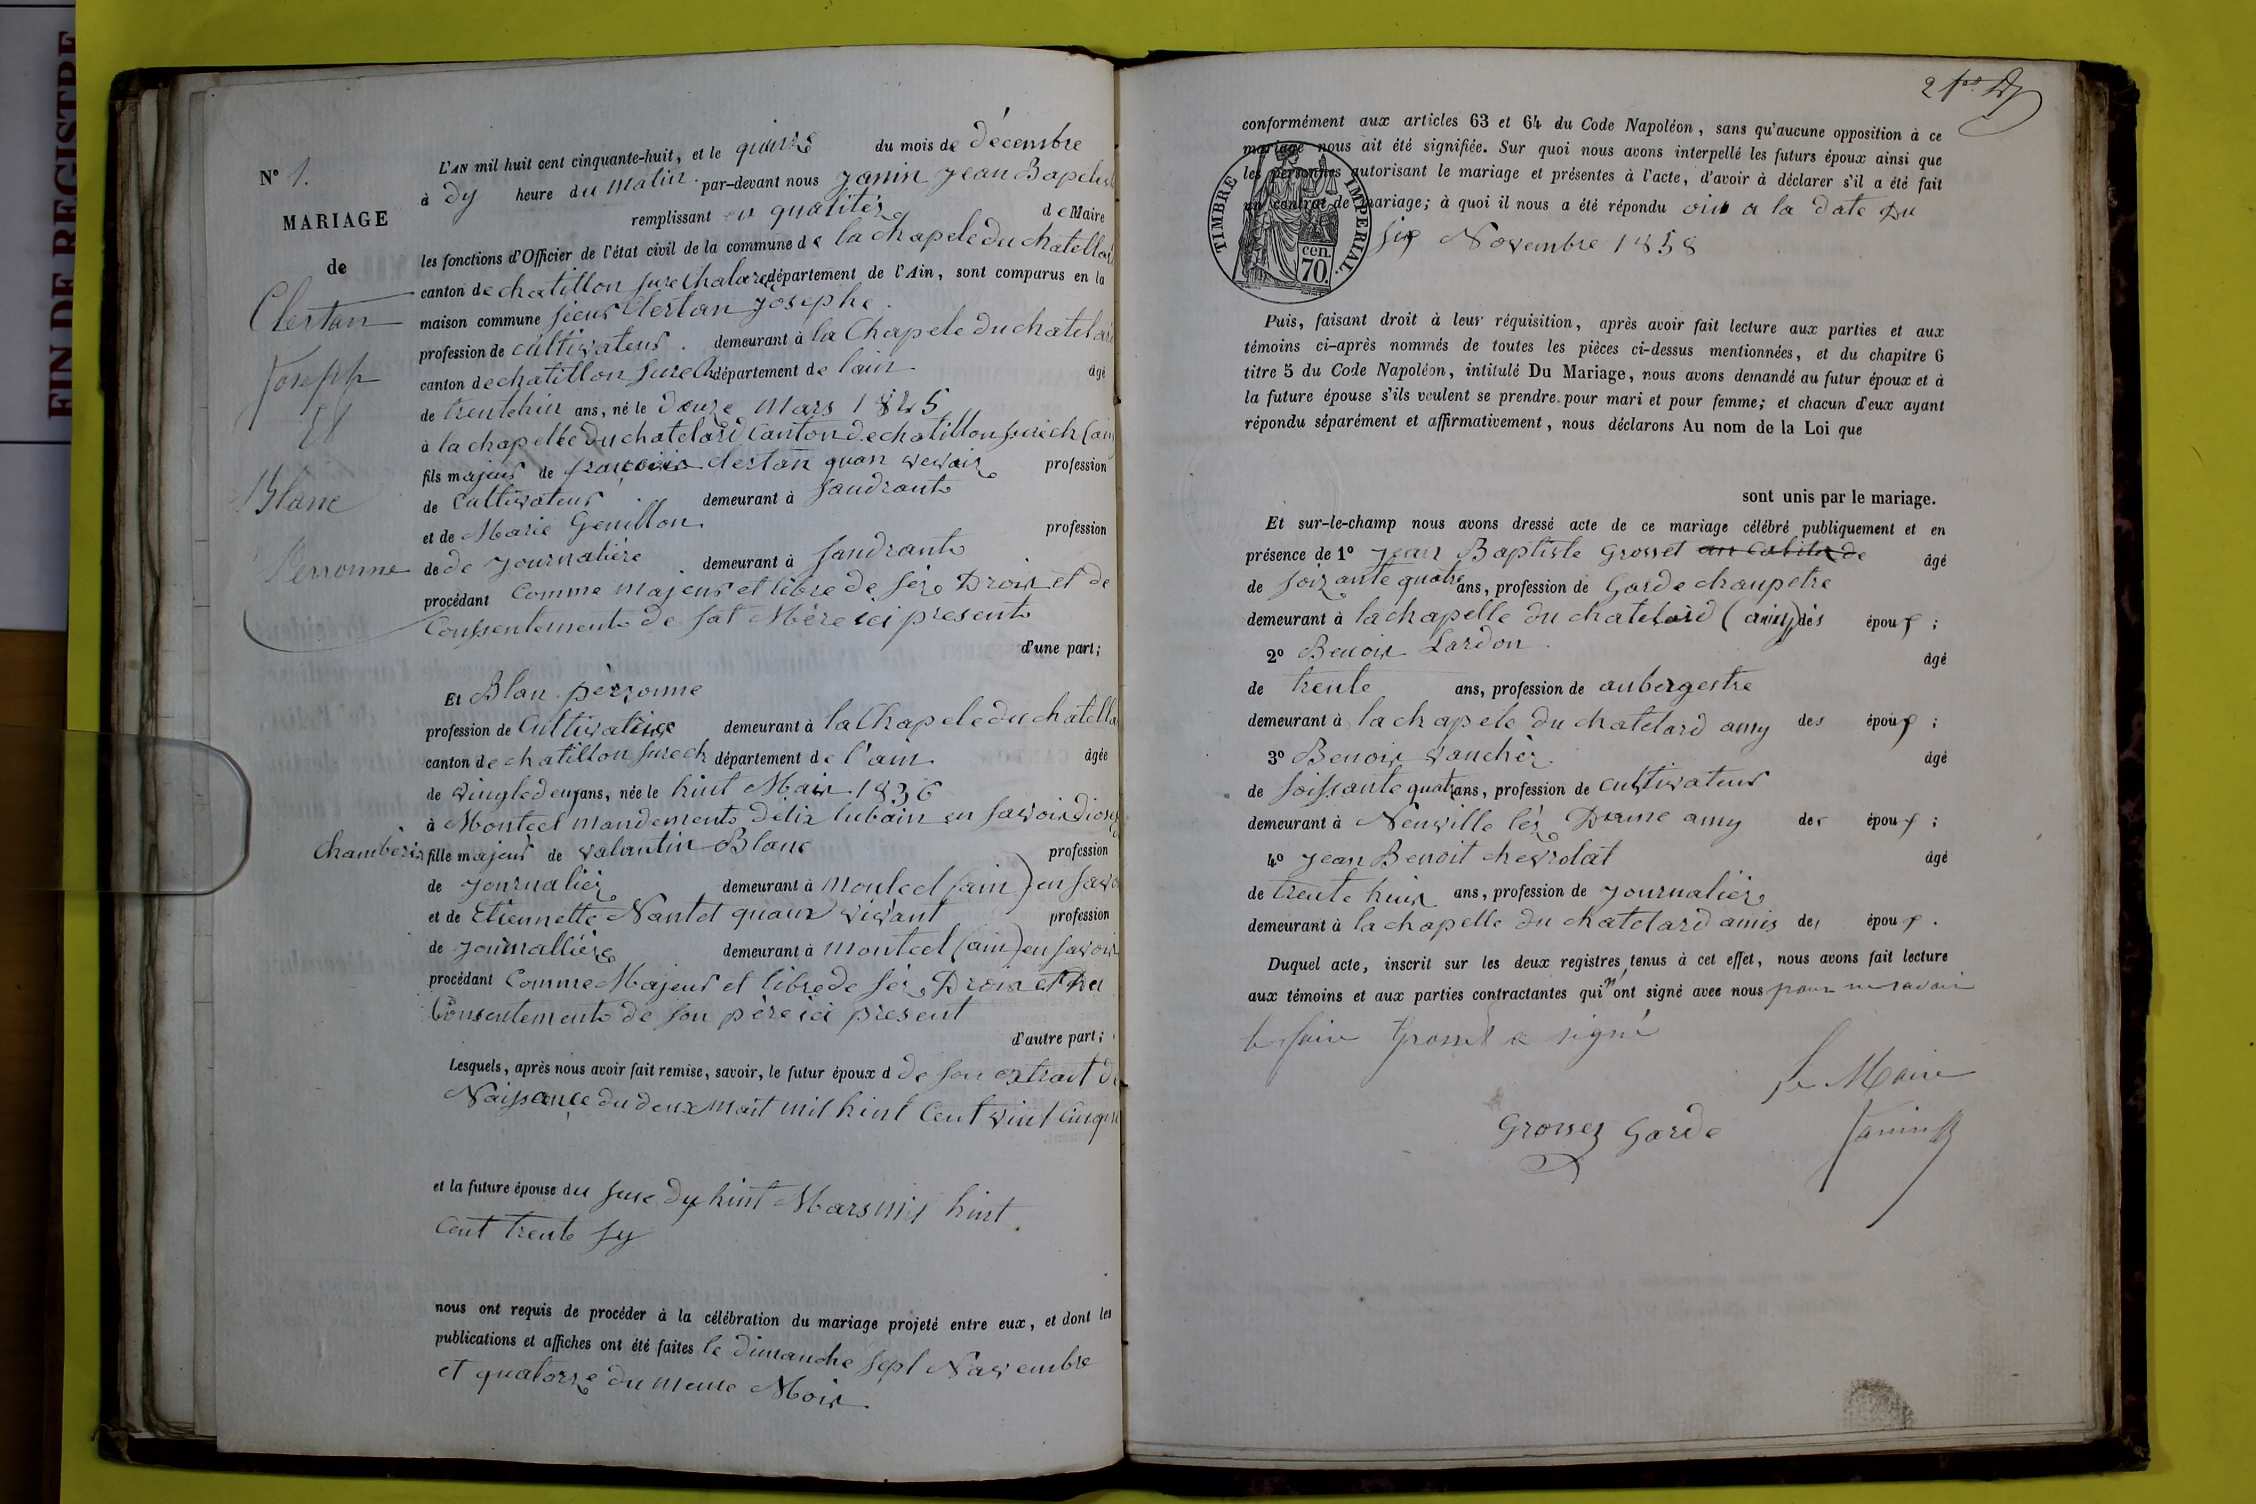 FIN DE REGISTRE
N° 1.
MARIAGE
de
Clertan
Joseph
et
Blanc
Perronne
L'AN mil huit cent cinquante-huit, et le quinze du mois de décembre
à dy heure du matin par-devant nous Janin Jean Bapti
remplissant en qualités de Maire
les fonctions d'Officier de l'état civil de la commune de la chapele du chatella
canton de chatillon sure Chalare département de l'Ain, sont comparus en la
maison commune sieur Clertan Josephe
profession de cultivateur. demeurant à la Chapele du chatelar
canton de chatillon sure Ch département de l'ain âgé
de trentehin ans, né le douze Mars 1825
à la chapelle du chatelard Canton de chatillon sure ch (ain
fils majeur de françois clertan quan vivair profession
de Cultivateur demeurant à Sandrants
et de Marie Genillon profession
de de journalière demeurant à Sandrants
procédant Comme majeur et libre de sés Droix et de
Conssentements de sat Mère ici presents
d'une part;
Et Blan pérronne
profession de Cultivatrixe demeurant à la Chapele du chatella
canton de chatillon sure ch département de l'ain âgée
de vingtedeux ans, née le huit Mars 1836
à Montcel mandements délix lubain en savoix diose
Chambérix fille majeur de valantin Blanc profession
de journaliér demeurant à montcel (ain) en savo
et de Etiennette Nantet quanr vivant profession
de journallière demeurant à montcel (ain) en savoix
procédant Comme Majeur et libre de sés Droix et du
Consentements de son père ici présent
d'autre part;
Lesquels, après nous avoir fait remise, savoir, le futur époux d de son extrait d
Naissance du doux mait mil huit Cent vint Cinque
et la future épouse du sure dy huit Mars mil huit
Cent trente sy
nous ont requis de procéder à la célébration du mariage projeté entre eux, et dont les
publications et affiches ont été faites le dimanche sept Navembre
et quatorze du meme Moix
2
conformément aux articles 63 et 64 du Code Napoléon, sans qu'aucune opposition à ce
mariage nous ait été signifiée. Sur quoi nous avons interpellé les futurs époux ainsi que
les personnes autorisant le mariage et présentes à l'acte, d'avoir à déclarer s'il a été fait
un contrat de mariage; à quoi il nous a été répondu oui a la date du
six Novembre 1858
TIMBRE IMPÉRIAL.
cen.
70.
Puis, faisant droit à leur réquisition, après avoir fait lecture aux parties et aux
témoins ci-après nommés de toutes les pièces ci-dessus mentionnées, et du chapitre 6
titre 5 du Code Napoléon, intitulé Du Mariage, nous avons demandé au futur époux et à
la future épouse s'ils veulent se prendre pour mari et pour femme; et chacun d'eux ayant
répondu séparément et affirmativement, nous déclarons Au nom de la Loi que
sont unis par le mariage.
Et sur-le-champ nous avons dressé acte de ce mariage célébré publiquement et en
présence de 1° Jean Baptiste Grosset âgé
de soixante quatre ans, profession de Garde chanpetre
demeurant à la chapelle du chatelard (ain) dés époux;
2° Benoix Lardon âgé
de trente ans, profession de aubergestre
demeurant à la chapele du chatelard amy des époux;
3° Benoix Vanchér âgé
de soissante quatr ans, profession de cultivateur
demeurant à Neuville léz Damne amy des époux;
4° Jean Benoit chevrolat âgé
de trente huix ans, profession de journaliér
demeurant à la chapelle du chatelard amis des époux.
Duquel acte, inscrit sur les deux registres tenus à cet effet, nous avons fait lecture
aux témoins et aux parties contractantes qui n'ont signé avec nous pour ne savoir
le faire Grosset a signé
Le Maire
Grosset Garde Janin